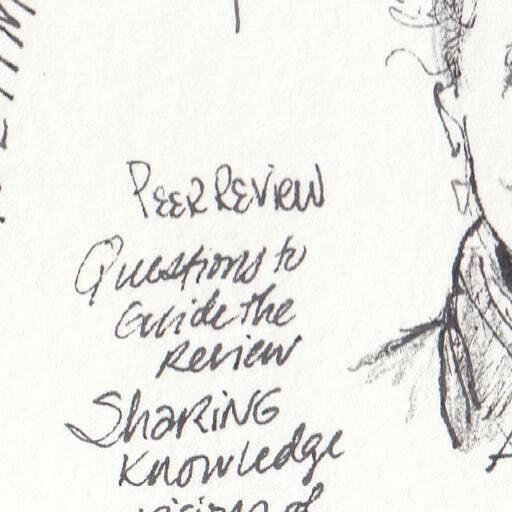 PEER REVIEW
Questions to
Guide the
Review
SHARING
Knowledge
visions of